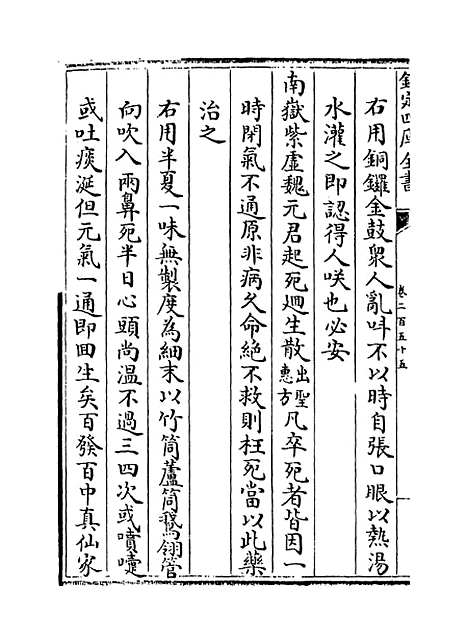 欽定四庫全書
卷二百五十五
右用銅鑼金鼓衆人亂呌不以時自張口眼以熱湯
水灌之即認得人咲也必安
南嶽紫虛魏元君起死廻生散出聖惠方凡卒死者皆因一
時閉氣不通原非病久命絕不救則枉死當以此藥
治之
右用半夏一味無製度為細末以竹筒蘆筒鵞翎管
向吹入兩鼻死半日心頭尚溫不過三四次或噴嚏
或吐痰涎但元氣一通即回生矣百發百中真仙家